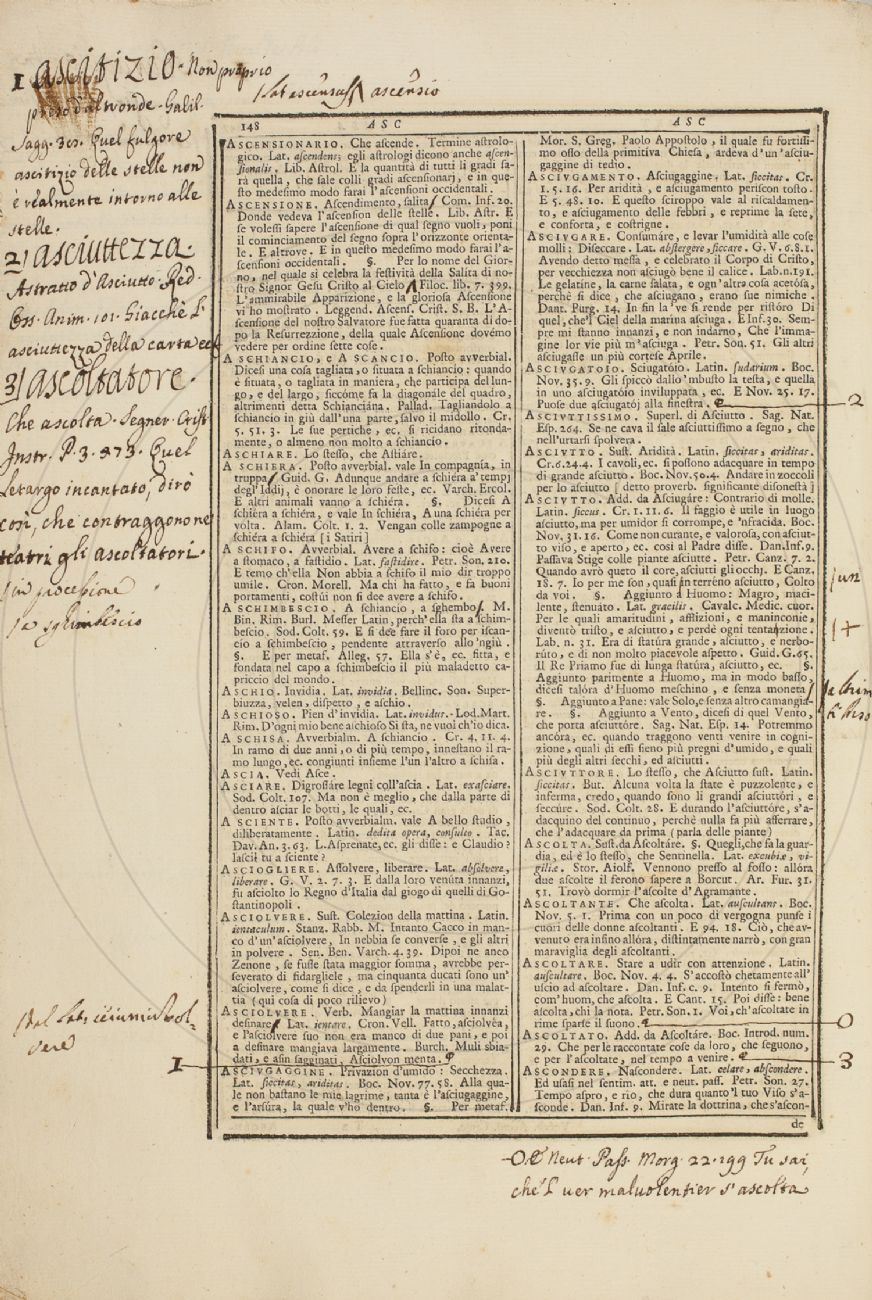 1 ascitizio. Non proprio
preso d'altronde. Galil.
Sagg. 301. Quel fulgore
ascitizio delle stelle non
è realmente intorno alle
stelle.
2) asciuttezza.
Astratto d'Asciutto. Red.
Oss. Anim. 101. Giacchè l'
asciuttezza della carta ec.
3) ascoltatore.
Che ascolta. Segner. Crist.
Instr. P. 3. 373. Quel
letargo incantato, dirò
così, che contraggono ne'
teatri gli ascoltatori.
in processione
a sghimbescio
dal Lat.
1
Lat. ascensus ascensio
148 ASC
ASCENSIONARIO. Che ascende. Termine astrolo-
gico. Lat. ascendens; egli astrologi dicono anche ascen-
sionalis. Lib. Astrol. E la quantità di tutti li gradi sa-
rà quella, che sale colli gradi ascensionarj, e in que-
sto medesimo modo farai l'ascensioni occidentali.
ASCENSIONE. Ascendimento, salita. Com. Inf. 20.
Donde vedeva l'ascension delle stelle. Lib. Astr. E
se volessi sapere l'ascensione di qual segno vuoli, poni
il cominciamento del segno sopra l'orizzonte orienta-
le. E altrove. E in questo medesimo modo farai l'a-
scensioni occidentali. §. Per lo nome del Gior-
no, nel quale si celebra la festività della Salita di no-
stro Signor Gesu Cristo al Cielo. Filoc. lib. 7. 399.
L'ammirabile Apparizione, e la gloriosa Ascensione
vi ho mostrato. Leggend. Ascens. Crist. S. B. L'A-
scensione del nostro Salvatore fue fatta quaranta di do-
po la Resurrezione, della quale Ascensione dovémo
vedere per ordine sette cose.
A SCHIANCIO, e A SCANCIO. Posto avverbial.
Dicesi una cosa tagliata, o situata a schiancio: quando
è situata, o tagliata in maniera, che participa del lun-
go, e del largo, siccóme fa la diagonále del quadro,
altrimenti detta Schianciána. Pallad. Tagliandolo a
schiancio in giù dall'una parte, salvo il midollo. Cr.
5. 51. 3. Le sue pertiche, ec. si ricidano ritonda-
mente, o almeno non molto a schiancio.
ASCHIARE. Lo stesso, che Astiáre.
A SCHIERA. Posto avverbial. vale In compagnía, in
truppa. Guid. G. Adunque andare a schiéra a' tempj
degl'Iddij, è onorare le loro feste, ec. Varch. Ercol.
E altri animali vanno a schiéra. §. Dicesi A
schiéra a schiéra, e vale In schiéra, A una schiéra per
volta. Alam. Colt. 1. 2. Vengan colle zampogne a
schiéra a schiéra [i Satiri]
A SCHIFO. Avverbial. Avere a schifo: cioè Avere
a stomaco, a fastidio. Lat. fastidire. Petr. Son. 210.
E temo ch'ella Non abbia a schifo il mio dir troppo
umile. Cron. Morell. Ma chi ha fatto, e fa buoni
portamenti, costúi non si dee avere a schifo.
A SCHIMBESCIO. A schiancio, a sghembo. M.
Bin. Rim. Burl. Messer Latin, perch'ella sta a schim-
bescio. Sod. Colt. 59. E si dee fare il foro per iscan-
cio a schimbescio, pendente attraverso allo 'ngiù.
§. E per metaf. Alleg. 57. Ella s'è, ec. fitta, e
fondata nel capo a schimbescio il più maladetto ca-
priccio del mondo.
ASCHIO. Invidia. Lat. invidia. Bellinc. Son. Super-
biuzza, velen, dispetto, e aschio.
ASCHIOSO. Pien d'invidia. Lat. invidus. Lod. Mart.
Rim. D'ogni mio bene aschioso Si sta, ne vuoi ch'io dica.
A SCHISA. Avverbialm. A schiancio. Cr. 4, 11. 4.
In ramo di due anni, o di più tempo, innestano il ra-
mo lungo, ec. congiunti insieme l'un l'altro a schisa.
ASCIA. Vedi Asce.
ASCIARE. Digrossáre legni coll'ascia. Lat. exasciare.
Sod. Colt. 107. Ma non è meglio, che dalla parte di
dentro asciar le botti, le quali, ec.
A SCIENTE. Posto avverbialm. vale A bello studio,
diliberatamente. Latin. dedita opera, consulto. Tac.
Dav. An. 3. 63. L. Asprenate, ec. gli disse: e Claudio?
lascil tu a sciente?
ASCIOGLIERE. Assolvere, liberare. Lat. absolvere,
liberare. G. V. 2. 7. 3. E dalla loro venúta innanzi,
fu asciolto lo Regno d'Italia dal giogo di quelli di Go-
stantinopoli.
ASCIOLVERE. Sust. Colezion della mattina. Latin.
ientaculum. Stanz. Rabb. M. Intanto Cacco in man-
co d'un'asciolver, In nebbia se converse, e gli altri
in polvere. Sen. Ben. Varch. 4. 39. Dipoi ne anco
Zenone, se fusse stata maggior somma, avrebbe per-
severato di fidargliele, ma cinquanta ducati sono un'
asciolvere, come si dice, e da spenderli in una malat-
tia (qui cosa di poco rilievo)
ASCIOLVERE. Verb. Mangiar la mattina innanzi
desinare. Lat. ientare. Cron. Vell. Fatto, asciolvèa,
e l'asciolvere suo non era manco di due pani, e poi
a desinare mangiava largamente. Burch. Muli sbia-
dati, e asin sagginati, Asciolvon menta.
ASCIVGAGGINE. Privazion d'umido: Secchezza.
Lat. siccitas, ariditas. Boc. Nov. 77. 58. Alla qua-
le non bastano le mie lagrime, tanta è l'asciugaggine,
e l'arsúra, la quale v'ho dentro. §. Per metaf.
ASC
Mor. S. Greg. Paolo Appostolo, il quale fu fortissi-
mo osso della primitiva Chiesa, ardeva d'un'asciu-
gaggine di tedio.
ASCIVGAMENTO. Asciugaggine, Lat. siccitas. Cr.
1. 5. 16. Per aridità, e asciugamento periscon tosto.
E 5. 48. 10. E questo sciroppo vale al riscaldamen-
to, e asciugamento delle febbri, e reprime la sete,
e conforta, e costrigne.
ASCIVGARE. Consumáre, e levar l'umidità alle cose
molli: Diseccare. Lat. abstergere, siccare. G. V. 6. 8. 1.
Avendo detto messa, e celebrato il Corpo di Cristo,
per vecchiezza non asciugò bene il calice. Lab. n. 191.
Le gelatine, la carne salata, e ogn'altra cosa acetósa,
perchè si dice, che asciugano, erano sue nimiche.
Dant. Purg. 14. In sin la 've si rende per ristóro Di
quel, che'l Ciel della marina asciuga. E Inf. 30. Sem-
pre mi stanno innanzi, e non indarno, Che l'imma-
gine lor vie più m'asciuga. Petr. Son. 51. Gli altri
asciugasse un più cortese Aprile.
ASCIVGATOIO. Sciugatóio. Latin. sudarium. Boc.
Nov. 35. 9. Gli spiccò dallo 'mbusto la testa, e quella
in uno asciugatóio inviluppata, ec. E Nov. 25. 17.
Puose due asciugatój alla finestra.
ASCIVTTISSIMO. Superl. di Asciutto. Sag. Nat.
Esp. 264. Se ne cava il sale asciuttissimo a segno, che
nell'urtarsi spolvera.
ASCIVTTO. Sust. Aridità. Latin. siccitas, ariditas.
Cr. 6. 24. 4. I cavoli, ec. si possono adacquare in tempo
di grande asciutto. Boc. Nov. 50. 4. Andare in zoccoli
per lo asciutto [detto proverb. significante disonestà]
ASCIVTTO. Add. da Asciugáre: Contrario di molle.
Latin. siccus. Cr. 1. 11. 6. Il faggio è utile in luogo
asciutto, ma per umidor si corrompe, e 'nfracida. Boc.
Nov. 31. 16. Come non curante, e valorosa, con asciut-
to viso, e aperto, ec. cosi al Padre disse. Dan. Inf. 9.
Passava Stige colle piante asciutte. Petr. Canz. 7. 2.
Quando avrò queto il core, asciutti gli occhj. E Canz.
18. 7. Io per me son, quasi in terréno asciutto, Colto
da voi. §. Aggiunto a Huomo: Magro, maci-
lente, stenuáto. Lat. gracilis. Cavalc. Medic. cuor.
Per le quali amaritudini, afflizioni, e maninconie,
diventò tristo, e asciutto, e perdè ogni tentazione.
Lab. n. 31. Era di statúra grande, asciutto, e nerbo-
rúto, e di non molto piacevole aspetto. Guid. G. 65.
Il Re Priamo fue di lunga statúra, asciutto, ec. §.
Aggiunto parimente a Huomo, ma in modo basso,
dicesi talóra d'Huomo meschino, e senza moneta
§. Aggiunto a Pane: vale Solo, e senza altro camangia-
re. §. Aggiunto a Vento, dicesi di quel Vento,
che porta asciuttóre. Sag. Nat. Esp. 14. Potremmo
ancóra, ec. quando traggono venti venire in cogni-
zione, quali di essi sieno più pregni d'umido, e quali
più degli altri secchi, ed asciutti.
ASCIVTTORE. Lo stesso, che Asciutto sust. Latin.
siccitas. But. Alcuna volta la state è puzzolente, e
inferma, credo, quando sono li grandi asciuttóri, e
seccúre. Sod. Colt. 28. E durando l'asciuttóre, s'a-
dacquino del continuo, perchè nulla fa più afferrare,
che l'adacquare da prima (parla delle piante)
ASCOLTA. Sust. da Ascoltáre. §. Quegli, che fa la guar-
dia, ed è lo stesso, che Sentinella. Lat. excubiæ, vi-
giliæ. Stor. Aiolf. Vennono presso al fosso: allóra
due ascolte il ferono sapere a Borcut. Ar. Fur. 31.
51. Trovò dormir l'ascolte d'Agramante.
ASCOLTANTE. Che ascolta. Lat. auscultans. Boc.
Nov. 5. 1. Prima con un poco di vergogna punse i
cuóri delle donne ascoltanti. E 94. 18. Ciò, che av-
venuto era insino allóra, distintamente narrò, con gran
maraviglia degli ascoltanti.
ASCOLTARE. Stare a udir con attenzione. Latin.
auscultare. Boc. Nov. 4. 4. S'accostò chetamente all'
uscio ad ascoltare. Dan. Inf. c. 9. Intento si fermò,
com'huom, che ascolta. E Cant. 15. Poi disse: bene
ascolta, chi la nota. Petr. Son. 1. Voi, ch'ascoltate in
rime sparse il suono.
ASCOLTATO. Add. da Ascoltáre. Boc. Introd. num.
29. Che per le raccontate cose da loro, che seguono,
e per l'ascoltate, nel tempo a venire.
ASCONDERE. Nascondere. Lat. celare, abscondere.
Ed usasi nel sentim. att. e neut. pass. Petr. Son. 27.
Tempo aspro, e rio, che dura quanto'l tuo Viso s'a-
sconde. Dan. Inf. 9. Mirate la dottrina, che s'ascon-
de
2
un
O
3
O E Neut. Pass. Morg. 22. 199 Tu sai,
che'l ver malvolentier s'ascolta